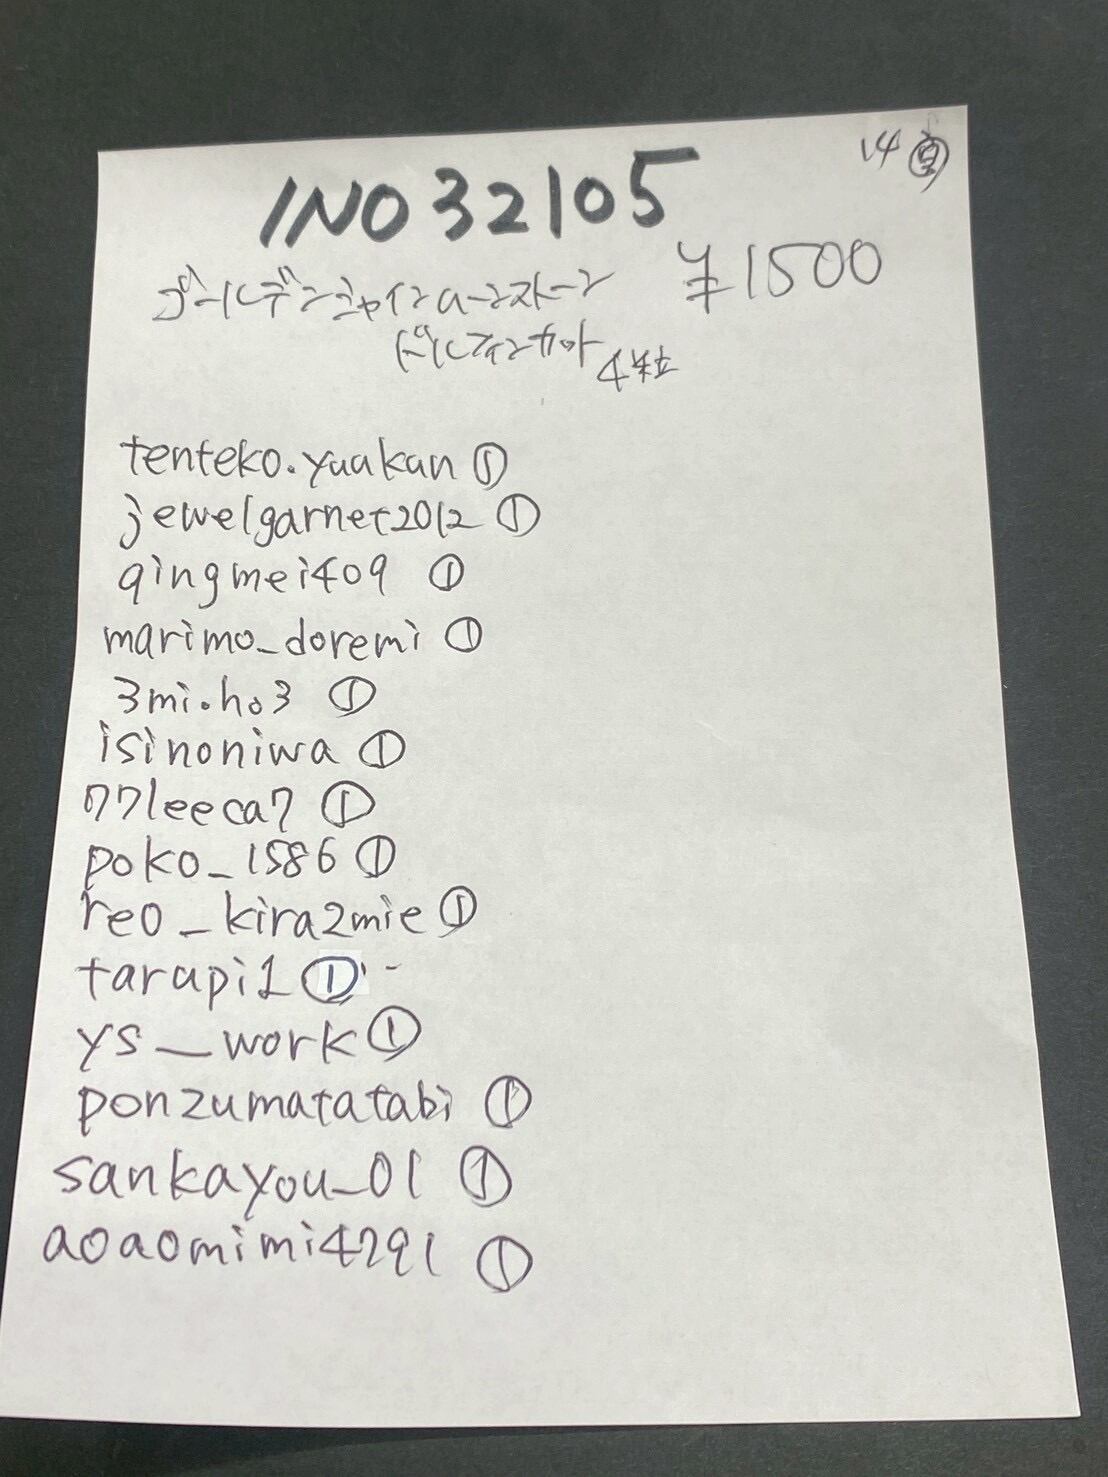 14
INO32105
¥1500
ゴールデンシャインムーンストーン
ドルフィンカット4粒
tenteko.yuukan①
jewelgarnet2012①
qingmei409 ①
marimo_doremi ①
3mi.ho3 ①
isinoniwa ①
77leeca7 ①
poko_1586①
reo_kira2mie①
tarupi1①
ys__work①
ponzumatatabi ①
sankayou_01 ①
aoaomimi4291 ①